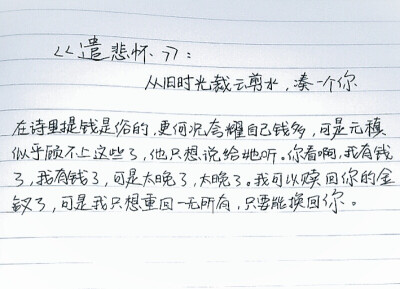 《遣悲怀》:
从旧时光裁云剪水,凑一个你
在诗里提钱是俗的,更何况夸耀自己钱多,可是元稹
似乎顾不上这些了,他只想说给她听。你看啊,我有钱
了,我有钱了,可是太晚了,太晚了。我可以赎回你的金
钗了,可是我只想重回一无所有,只要能换回你。